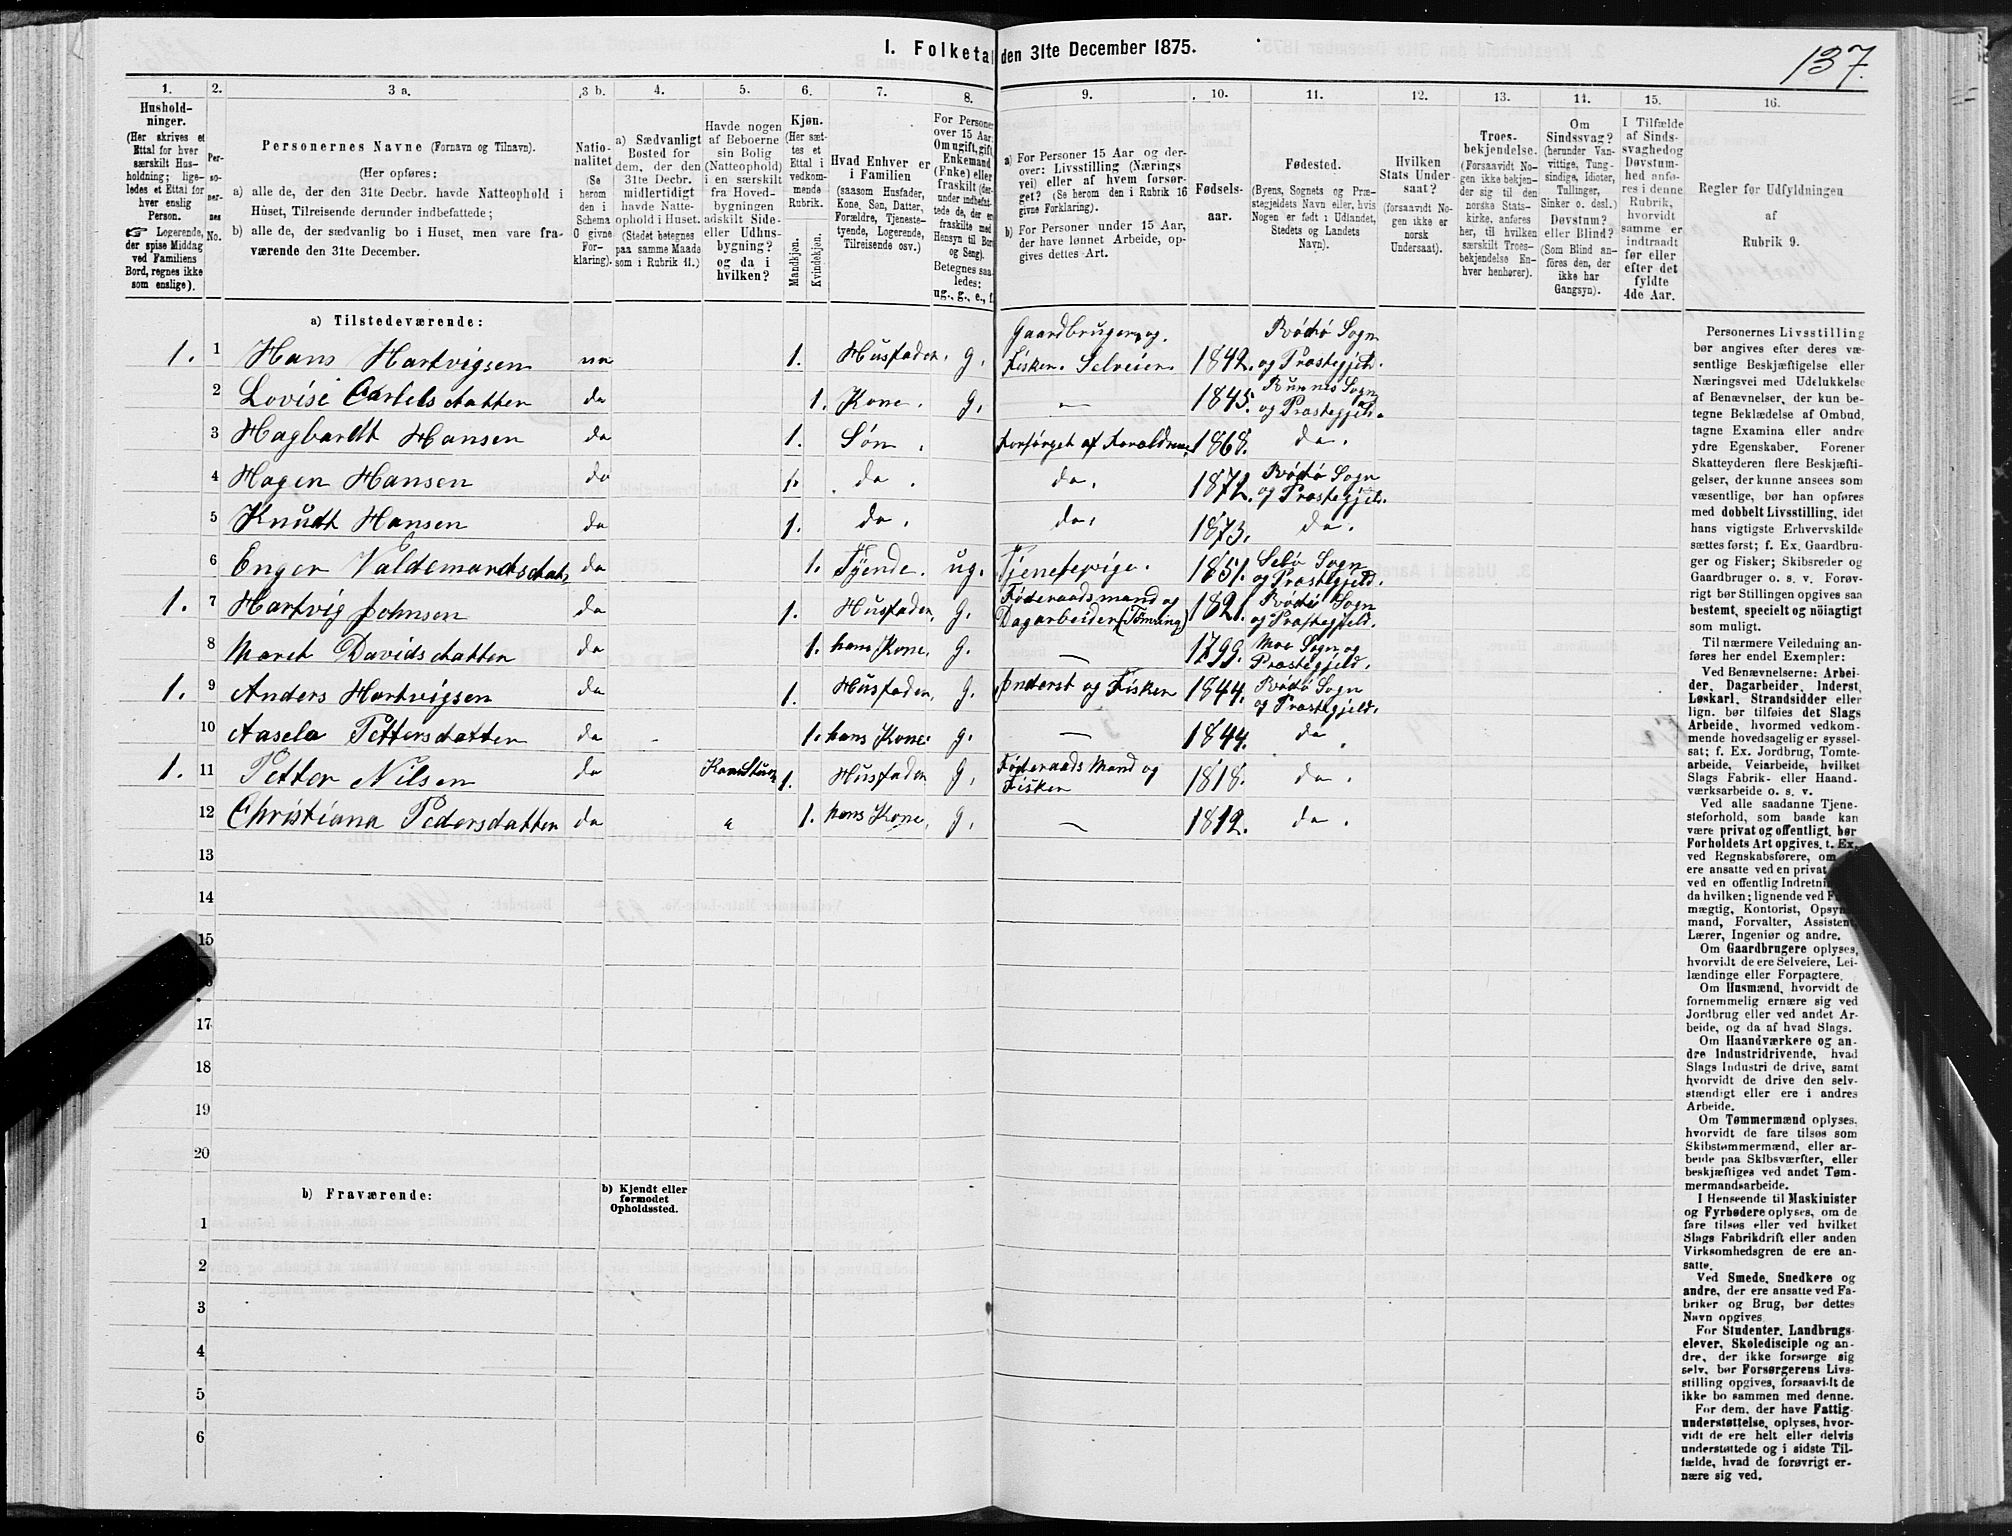 137.
1. Folketal den 31te December 1875.
1. 2. 3 a. 3 b. 4. 5. 6. 7. 8. 9. 10. 11. 12. 13. 14. 15. 16.
Hushold-
ninger.
(Her skrives et
Ettal for hver
særskilt Hus-
holdning; lige-
ledes et Ettal for
hver enslig
Person.
☞ Logerende,
der spise Middag
ved Familiens
Bord, regnes ikke
som enslige).
Per-
so-
ner-
nes
No.
Personernes Navne (Fornavn og Tilnavn).
(Her opføres:
a) alle de, der den 31te Decbr. havde Natteophold i
Huset, Tilreisende derunder indbefattede;
b) alle de, der sædvanlig bo i Huset, men vare fra-
værende den 31te December.
Natio-
nalitet
(Se
herom
den i
Schema
O givne
For-
klaring).
a) Sædvanligt
Bosted for
dem, der den
31te Decbr.
midlertidigt
havde Natte-
ophold i Huset.
(Stedet betegnes
paa samme Maade
som i Rubrik 11.)
Havde nogen
af Beboerne
sin Bolig
(Natteophold)
i en særskilt
fra Hoved-
bygningen
adskilt Side-
eller Udhus-
bygning?
og da i
hvilken?
Kjøn.
(Her sæt-
tes et
Ettal i
vedkom-
mende
Rubrik.
Mandkjøn.
Kvindekjøn.
Hvad Enhver er
i Familien
(saasom Husfader,
Kone, Søn, Datter,
Forældre, Tjeneste-
tyende, Logerende,
Tilreisende osv.)
For Personer
over 15 Aar:
Om ugift, gift,
Enkemand
(Enke) eller
fraskilt (der-
under indbefat-
tede de, der ere
fraskilte med
Hensyn til Bord
og Seng).
Betegnes saa-
ledes:
ug., g., e., f.
a) For Personer 15 Aar og der-
over: Livsstilling (Nærings-
vei) eller af hvem forsør-
get? (Se herom den i Rubrik 16
givne Forklaring).
b) For Personer under 15 Aar,
der have lønnet Arbeide, op-
gives dettes Art.
Fødsels-
aar.
Fødested.
(Byens, Sognets og Præ-
stegjeldets Navn eller, hvis
Nogen er født i Udlandet,
Stedets og Landets
Navn).
Hvilken
Stats Under-
saat?
(forsaavidt No-
gen ikke er
norsk
Undersaat).
Troes-
bekjendelse.
(Forsaavidt No-
gen ikke bekjen-
der sig til den
norske Stats-
kirke, anføres
her, til hvilken
særskilt Troes-
bekjendelse En-
hver henhører).
Om
Sindssvag?
(herunder Van-
vittige, Tung-
sindige, Idioter,
Tullinger,
Sinker o. desl.)
Døvstum?
eller Blind?
(Som Blind an-
føres den, der
ikke har
Gangsyn).
I Tilfælde
af Sinds-
svaghed og
Døvstum-
hed anfø-
res i denne
Rubrik,
hvorvidt
samme er
indtraadt
før eller
efter det
fyldte
4de Aar.
Regler for Udfyldningen
af
Rubrik 9.
a) Tilstedeværende:
1. 1 Hans Hartvigsen nn 1. Husfader. g. Gaardbruger og Fisker. Selveier. 1842. Rödö Sogn og Præstegjeld.
2 Lovise Carlelsdatter do 1. Kone. g. — 1845. Runnes Sogn og Præstegjeld.
3 Hagbardt Hansen do 1. Søn. Forsörget af Forældrene 1868. do.
4 Hagen Hansen do 1. do. do. 1872. Rödö Sogn og Præstegjeld.
5 Knudt Hansen do 1. do. do. 1873. do.
6 Enger Valdemardsdat. do 1. Tyende. ug. Tjenestepige. 1851. Selö Sogn og Præstegjeld.
1. 7 Hartvig Johnsen do 1. Husfader. g. Föderaadsmand og Dagarbeider (Tömring) 1821. Rödö Sogn og Præstegjeld.
8 Maret Davidsdatter do 1. hans Kone. g. — 1799. Moe Sogn og Præstegjeld.
1. 9 Anders Hartvigsen do 1. Husfader. g. Inderst og Fisker 1844. Rödö Sogn og Præstegjeld.
10 Aasela Pettersdatter do 1. hans Kone. g. — 1844. do.
1. 11 Petter Nilsen do 1. Husfader g. Föderaads Mand og Fisker 1818. do.
12 Christiana Pedersdatter do " 1. hans Kone. g. — 1812. do.
13
14
15
17
18
19
20
b) Fraværende:
b) Kjendt eller
formodet
Opholdssted.
1
2
3
4
5
6
Personernes Livsstilling
bør angives efter deres væ-
sentlige Beskjæftigelse eller
Næringsvei med Udelukkelse
af Benævnelser, der kun be-
tegne Beklædelse af Ombud,
tagne Examina eller andre
ydre Egenskaber. Forener
Skatteyderen flere Beskjæfti-
gelser, der kunne ansees som
væsentlige, bør han opføres
med dobbelt Livsstilling, idet
hans vigtigste Erhvervskilde
sættes først; f. Ex. Gaardbru-
ger og Fisker; Skibsreder og
Gaardbruger o. s. v. Forøv-
rigt bør Stillingen opgives saa
bestemt, specielt og nöiagtigt
som muligt.
Til nærmere Veiledning an-
føres her endel Exempler:
Ved Benævnelserne: Arbei-
der, Dagarbeider, Inderst,
Løskarl, Strandsidder eller
lign. bør tilføies det Slags
Arbeide, hvormed vedkom-
mende hovedsagelig er syssel-
sat; f. Ex. Jordbrug, Tomte-
arbeide, Veiarbeide, hvilket
Slags Fabrik- eller Haand-
værksarbeide o. s. v.
Ved alle saadanne Tjene-
steforhold, som baade kan
være privat og offentligt, bør
Forholdets Art opgives, t. Ex.
ved Regnskabsførere, om
ere ansatte ved en privat
ved en offentlig Indretnin
da hvilken; lignende ved F
mægtig, Kontorist, Opsyns-
mand, Forvalter, Assistent,
Lærer, Ingeniør og andre.
Om Gaardbrugere oplyses,
hvorvidt de ere Selveiere, Lei-
lændinge eller Forpagtere.
Om Husmænd, hvorvidt de
fornemmelig ernære sig ved
Jordbrug eller ved andet Ar-
beide, og da af hvad Slags.
Om Haandværkere og an-
dre Industridrivende, hvad
Slags Industri de drive, samt
hvorvidt de drive den selv-
stændigt eller ere i andres
Arbeide.
Om Tømmermænd oplyses,
hvorvidt de fare tilsøs som
Skibstømmermænd, eller ar-
beide paa Skibsværfter, eller
beskjæftiges ved andet Tøm-
mermandsarbeide.
I Henseende til Maskinister
og Fyrbødere oplyses, om de
fare tilsøs eller ved hvilket
Slags Fabrikdrift eller anden
Virksomhedsgren de ere an-
satte.
Ved Smede, Snedkere og
andre, der ere ansatte ved Fa-
briker og Brug, bør dettes
Navn opgives.
For Studenter, Landbrugs-
elever, Skoledisciple og an-
dre, der ikke forsørge sig
selv, bør Forsørgerens Livs-
stilling opgives, forsaavidt de
ikke bo sammen med denne.
For dem, der have Fattig-
understøttelse, oplyses, hvor-
vidt de ere helt eller delvis
understøttede og i sidste Til-
fælde, hvad de forøvrigt er-
nære sig ved.